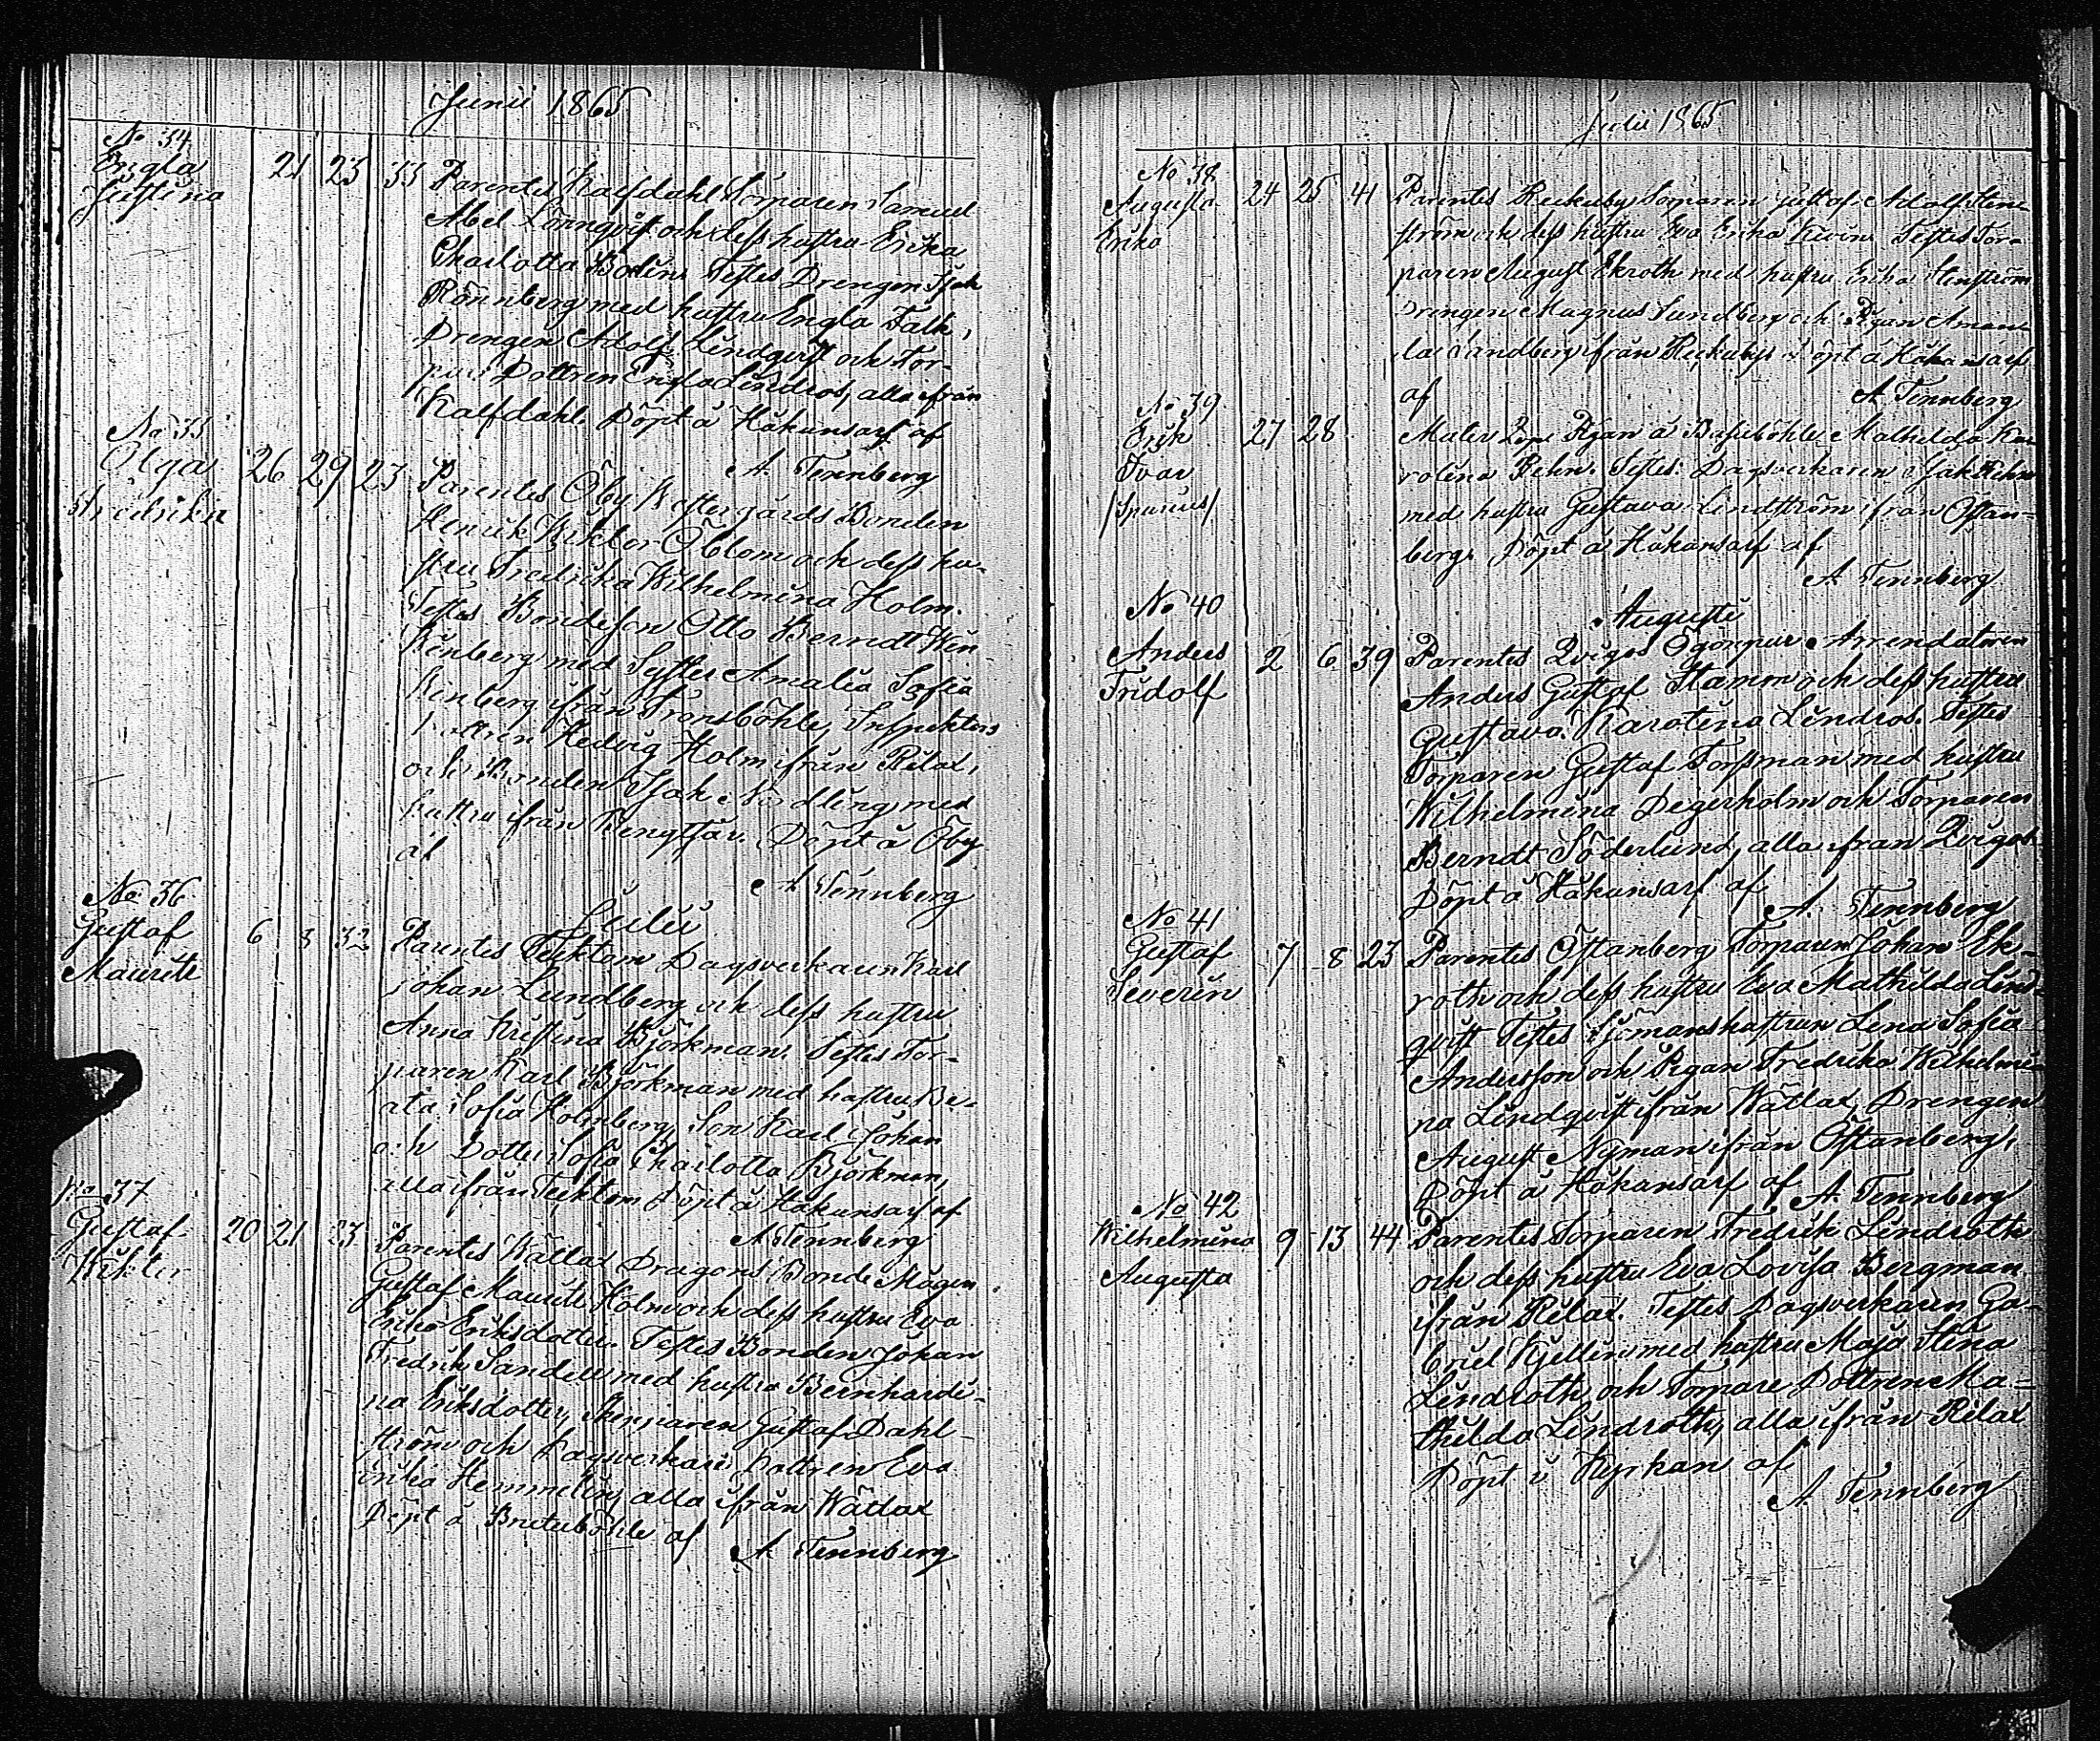 Junii 1865
No 34
Engla
Justina
21 23 33 Parentes Kalfdahl Torparen Samuel
Abel Lönnqvist och dess hustru Erika
Charlotta Bodin. Testes Drengen Isak
Rönnberg med hustru Engla Falk,
Drengen Adolf Lindqvist och Tor-
pare Dottren Engla Lindros, alla ifrån
Kalfdahl. Döpt å Håkansarf af
A. Tennberg
No 35
Olga
Fredrika
26 29 23 Parentes Öby Westergårds Bonden
Henrik Wiktor Öblom och dess hu-
stru Fredrika Wilhelmina Holm.
Testes Bondeson Otto Berndt Win-
Kinberg med Syster Amalia Sofia
Kinberg ifrån Transböhle, Inspektors
Dottren Hedvig Holm ifrån Rilax,
och Bonden Isak Nordling med
hustru ifrån Bengtsår. Döpt å Öby
af
A. Tennberg
Julii
No 36
Gustaf
Mauritz
6 8 32 Parentes Tecktom Dagsverkaren Karl
Johan Lundberg och dess hustru
Anna Kristina Björkman. Testes Tor-
paren Karl Björkman med hustru Be-
ata Sofia Holmberg, Son Karl Johan
och Dotter Sofia Charlotta Björkman,
alla ifrån Tecktom Döpt å Håkansarf af
A. Tennberg
No 37
Gustaf
Wikter
20 21 23 Parentes Wättlax Dragons Bonde Mågen
Gustaf Mauritz Holm och dess hustru Eva
Erika Eriksdotter. Testes Bonden Johan
Fredrik Sandell med hustru Bernhardi-
na Eriksdotter, Skepparen Gustaf Dahl-
ström och Dagsverkare Dottren Eva
Erika Hemmelin, alla ifrån Wättlax
Döpt å Bruteböhle af
A. Tennberg
Julii 1865
No 38
Augusta
Erika
24 25 41 Parentes Reckuby Torparen Gustaf Adolf Sten-
ström och dess hustru Eva Erika Kevin. Testes Tor-
paren August Ekroth med hustru Erika Stenström
Drengen Magnus Sundberg och Pigan Aman-
da Sandberg ifrån Reckuby. Döpt å Håkansarf
af A. Tennberg
No 39
Erik
Ivar
/Spurius/
27 28 Mater Pigan å Busiböhle Mathilda Ka-
rolina Rehn. Testes: Dagsverkaren Isak Rehn
med hustru Gustava Lindström ifrån Östan-
berg. Döpt å Håkansarf af
A. Tennberg
Augusti
No 40
Anders
Fridolf
2 6 39 Parentes Qvigos Ögongur Arrendatoren
Anders Gustaf Stamm och dess hustru
Gustava Karolina Lindros. Testes
Torparen Gustaf Forssman med hustru
Wilhelmina Degerholm och Torparen
Berndt Söderlund, alla ifrån Qvigos.
Döpt å Håkansarf af
A. Tennberg
No 41
Gustaf
Severin
7 8 23 Parentes Östanberg Torparen Johan Ek-
roth och dess hustru Eva Mathilda Lind-
qvist Testes Sjömanshustrun Lena Sofia
Andersson och Pigan Fredrika Wilhelmi-
na Lindqvist ifrån Wättlax, Drengen
August Nyman ifrån Östanberg,
Döpt å Håkansarf af A. Tennberg
No 42
Wilhelmina
Augusta
9 13 44 Parentes Torparen Fredrik Lindroth
och dess hustru Eva Lovisa Bergman
ifrån Rilax. Testes Dagsverkaren Ga-
briel Kjellin med hustru Maja Stina
Lindroth och Torpare Dottren Ma-
thilda Lindroth, alla ifrån Rilax
Döpt i Kyrkan af
A. Tennberg